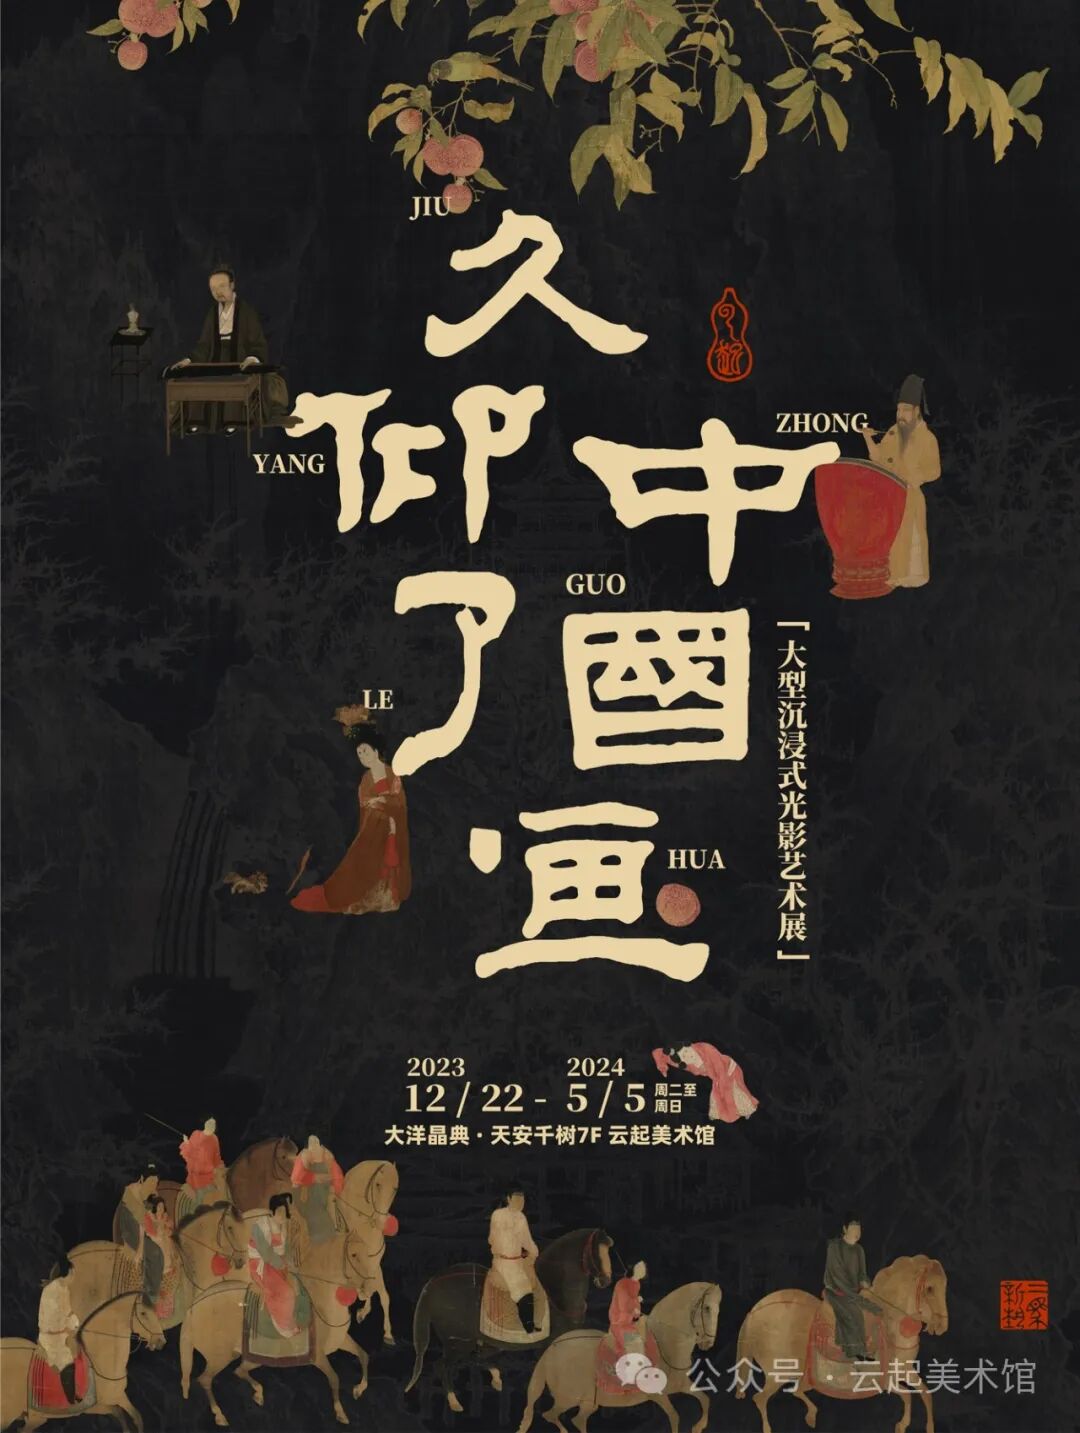 JIU
久
YANG
仰
LE
了
ZHONG
中
GUO
國
HUA
画
「大型沉浸式光影艺术展」
2023 2024
12 / 22 - 5 / 5 周二至周日
大洋晶典·天安千树7F 云起美术馆
公众号·云起美术馆